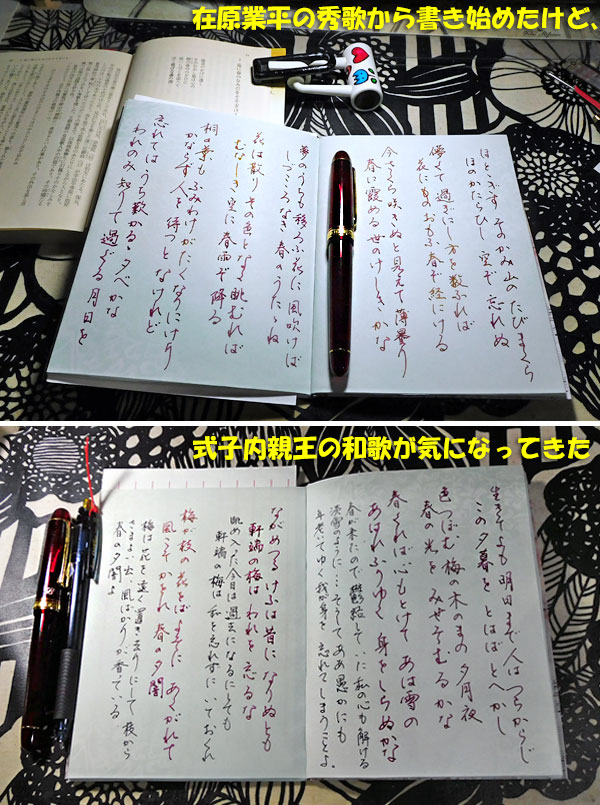 在原業平の秀歌から書き始めたけど、
ほとゝぎす そのかみ山の たびまくら
ほのかたらひし 空ぞ 忘れぬ
儚くて 過ぎにし方を 数ふれば
花にものおもふ 春ぞ経にける
今さくら 咲きぬと見えて 薄曇り
春に霞める 世のけしきかな
夢のうちも 移ろふ花に 風吹けば
しづこゝろなき 春のうたゝね
花は散り その色となく 眺むれば
むなしき空に 春雨ぞ降る
桐の葉も ふみわけがたくなりにけり
かならず人を 待つとなけれど
忘れては うち歎かるゝ 夕べかな
われのみ知りて 過ぐる月日を
式子内親王の和歌が気になってきた
生きてよも 明日まで人は つらからじ
この夕暮を とはば とへかし
色つぼむ 梅の木のまの 夕月夜
春の光を みせそむるかな
春くれば心もとけて あは雪の
あはれふりゆく 身をしらぬかな
春が来たので 鬱結していた 私の心も解ける
淡雪のように…そうして ああ愚かにも
年老いてゆく 我が身を 忘れてしまうことよ
ながめつる けふは昔に なりぬとも
軒端の梅は われを忘るな
眺めやった今日は過去になるにしても
軒端の梅は 私を忘れずに いておくれ
梅が枝の 花をばよそに あくがれて
風こそかをれ 春の夕闇
梅は花を遠く置き去りにして 枝から
さまよい出、風ばかりが香っている
春の夕闇よ